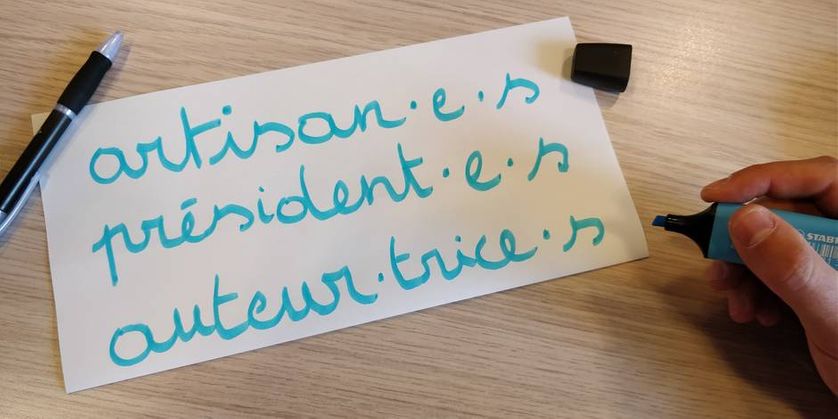 artisan·e·s
président·e·s
auteur·trice·s
STABI